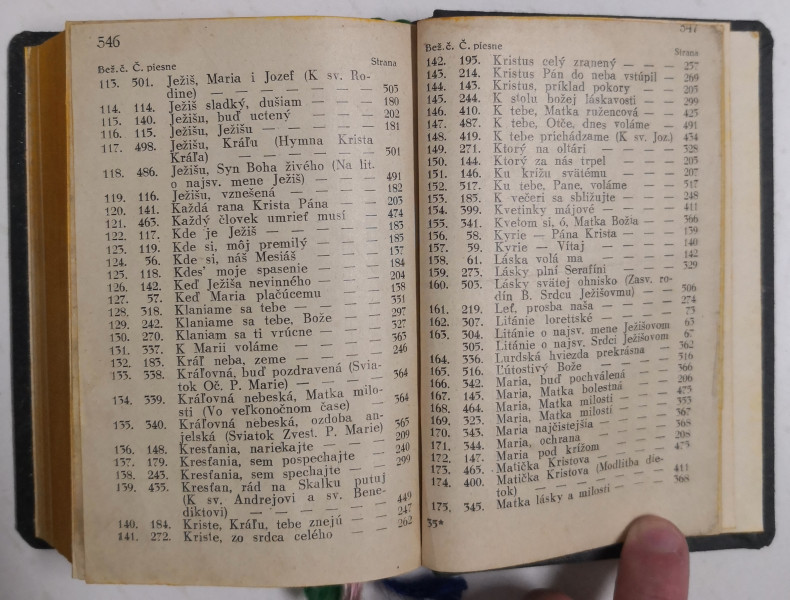 546
Bež.č. Č. piesne Strana
113. 501. Ježiš, Maria i Jozef (K sv. Ro-
dine) — — — — — — 503
114. 114. Ježiš sladký, dušiam — — — 180
115. 140. Ježišu, buď uctený — — — 202
116. 115. Ježišu, Ježišu — — — — — 181
117. 498. Ježišu, Kráľu (Hymna Krista
Kráľa) — — — — — — 501
118. 486. Ježišu, Syn Boha živého (Na lit.
o najsv. mene Ježiš) — — — 491
119. 116. Ježišu, vznešená — — — — 182
120. 141. Každá rana Krista Pána — — 203
121. 463. Každý človek umrieť musí — 474
122. 117. Kde je Ježiš — — — — — 183
123. 119. Kde si, môj premilý — — — 185
124. 56. Kde si, náš Mesiáš — — — 137
125. 118. Kdes' moje spasenie — — — 184
126. 142. Keď Ježiša nevinného — — — 204
127. 57. Keď Maria plačúcemu — — — 138
128. 318. Klaniame sa tebe — — — — 351
129. 242. Klaniame sa tebe, Bože — — 297
130. 270. Klaniam sa ti vrúcne — — — 327
131. 337. K Marii voláme — — — — 363
132. 183. Kráľ neba, zeme — — — — 246
133. 338. Kráľovná, buď pozdravená (Svia-
tok Oč. P. Marie) — — — — 364
134. 339. Kráľovná nebeská, Matka milo-
sti (Vo veľkonočnom čase) — 364
135. 340. Kráľovná nebeská, ozdoba an-
jelská (Sviatok Zvest. P. Marie) 365
136. 148. Kresťania, nariekajte — — — 209
137. 179. Kresťania, sem pospechajte — 240
138. 243. Kresťania, sem spechajte — — 299
139. 435. Kresťan, rád na Skalku putuj
(K sv. Andrejovi a sv. Bene-
diktovi) — — — — — — 449
140. 184. Kriste, Kráľu, tebe znejú — — 247
141. 272. Kriste, zo srdca celého — — 262
547
Bež.č. Č. piesne Strana
142. 195. Kristus celý zranený — — — 257
143. 214. Kristus Pán do neba vstúpil — 269
144. 143. Kristus, príklad pokory — — 205
145. 244. K stolu božej láskavosti — — 299
146. 410. K tebe, Matka ružencová — — 425
147. 487. K tebe, Otče, dnes voláme — 491
148. 419. K tebe prichádzame (K sv. Joz.) 434
149. 271. Ktorý na oltári — — — — 328
150. 144. Ktorý za nás trpel — — — 205
151. 146. Ku krížu svätému — — — 207
152. 517. Ku tebe, Pane, voláme — — 517
153. 185. K večeri sa sbližujte — — — 248
154. 399. Kvetinky májové — — — — 411
155. 341. Kvetom si, ó, Matka Božia — — 366
156. 58. Kyrie — Pána Krista — — — 139
157. 59. Kyrie — Vitaj — — — — 140
158. 61. Láska volá ma — — — — 142
159. 273. Lásky plní Serafíni — — — 329
160. 503. Lásky svätej ohnisko (Zasv. ro-
dín B. Srdcu Ježišovmu) — — 506
161. 219. Leť, prosba naša — — — — 274
162. 307. Litánie lorettské — — — — 73
163. 304. Litánie o najsv. mene Ježišovom 63
305. Litánie o najsv. Srdci Ježišovom 67
164. 336. Lurdská hviezda prekrásna — 362
165. 516. Ľútostivý Bože — — — — 516
166. 342. Maria, buď pochválená — — 366
167. 145. Maria, Matka bolestná — — 206
168. 464. Maria, Matka milosti — — — 475
169. 323. Maria, Matka milosti — — — 353
170. 343. Maria najčistejšia — — — 367
171. 344. Maria, ochrana — — — — 368
172. 147. Maria pod krížom — — — 208
173. 465. Matička Kristova — — — 475
174. 400. Matička Kristova (Modlitba die-
tok) — — — — — — 411
175. 345. Matka lásky a milosti — — — 368
35*